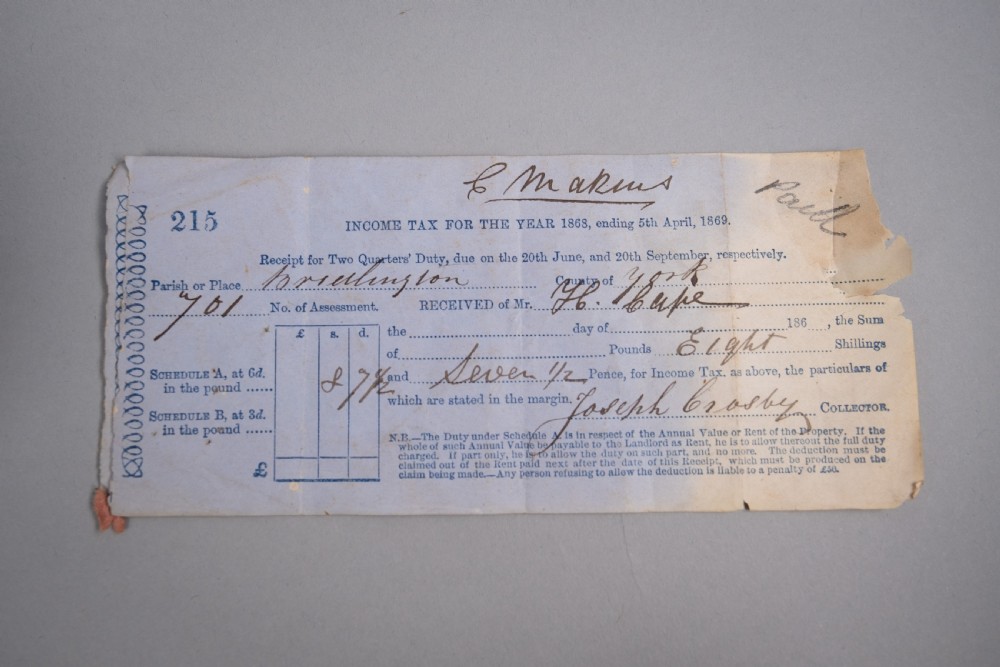 C Makins
Paid
215
INCOME TAX FOR THE YEAR 1868, ending 5th April, 1869.
Receipt for Two Quarters' Duty, due on the 20th June, and 20th September, respectively.
Parish or Place Bridlington County of York
701 No. of Assessment. RECEIVED of Mr. H. Cape
£ s. d.
the day of 186 , the Sum
of Pounds Eight Shillings
SCHEDULE A, at 6d.
in the pound ......
8 7½
and Seven 1/2 Pence, for Income Tax. as above, the particulars of
which are stated in the margin. Joseph Crosby COLLECTOR.
SCHEDULE B, at 3d.
in the pound ......
£
N.B.—The Duty under Schedule A. is in respect of the Annual Value or Rent of the Property. If the
whole of such Annual Value be payable to the Landlord as Rent, he is to allow thereout the full duty
charged. If part only, he is to allow the duty on such part, and no more. The deduction must be
claimed out of the Rent paid next after the date of this Receipt, which must be produced on the
claim being made.—Any person refusing to allow the deduction is liable to a penalty of £50.